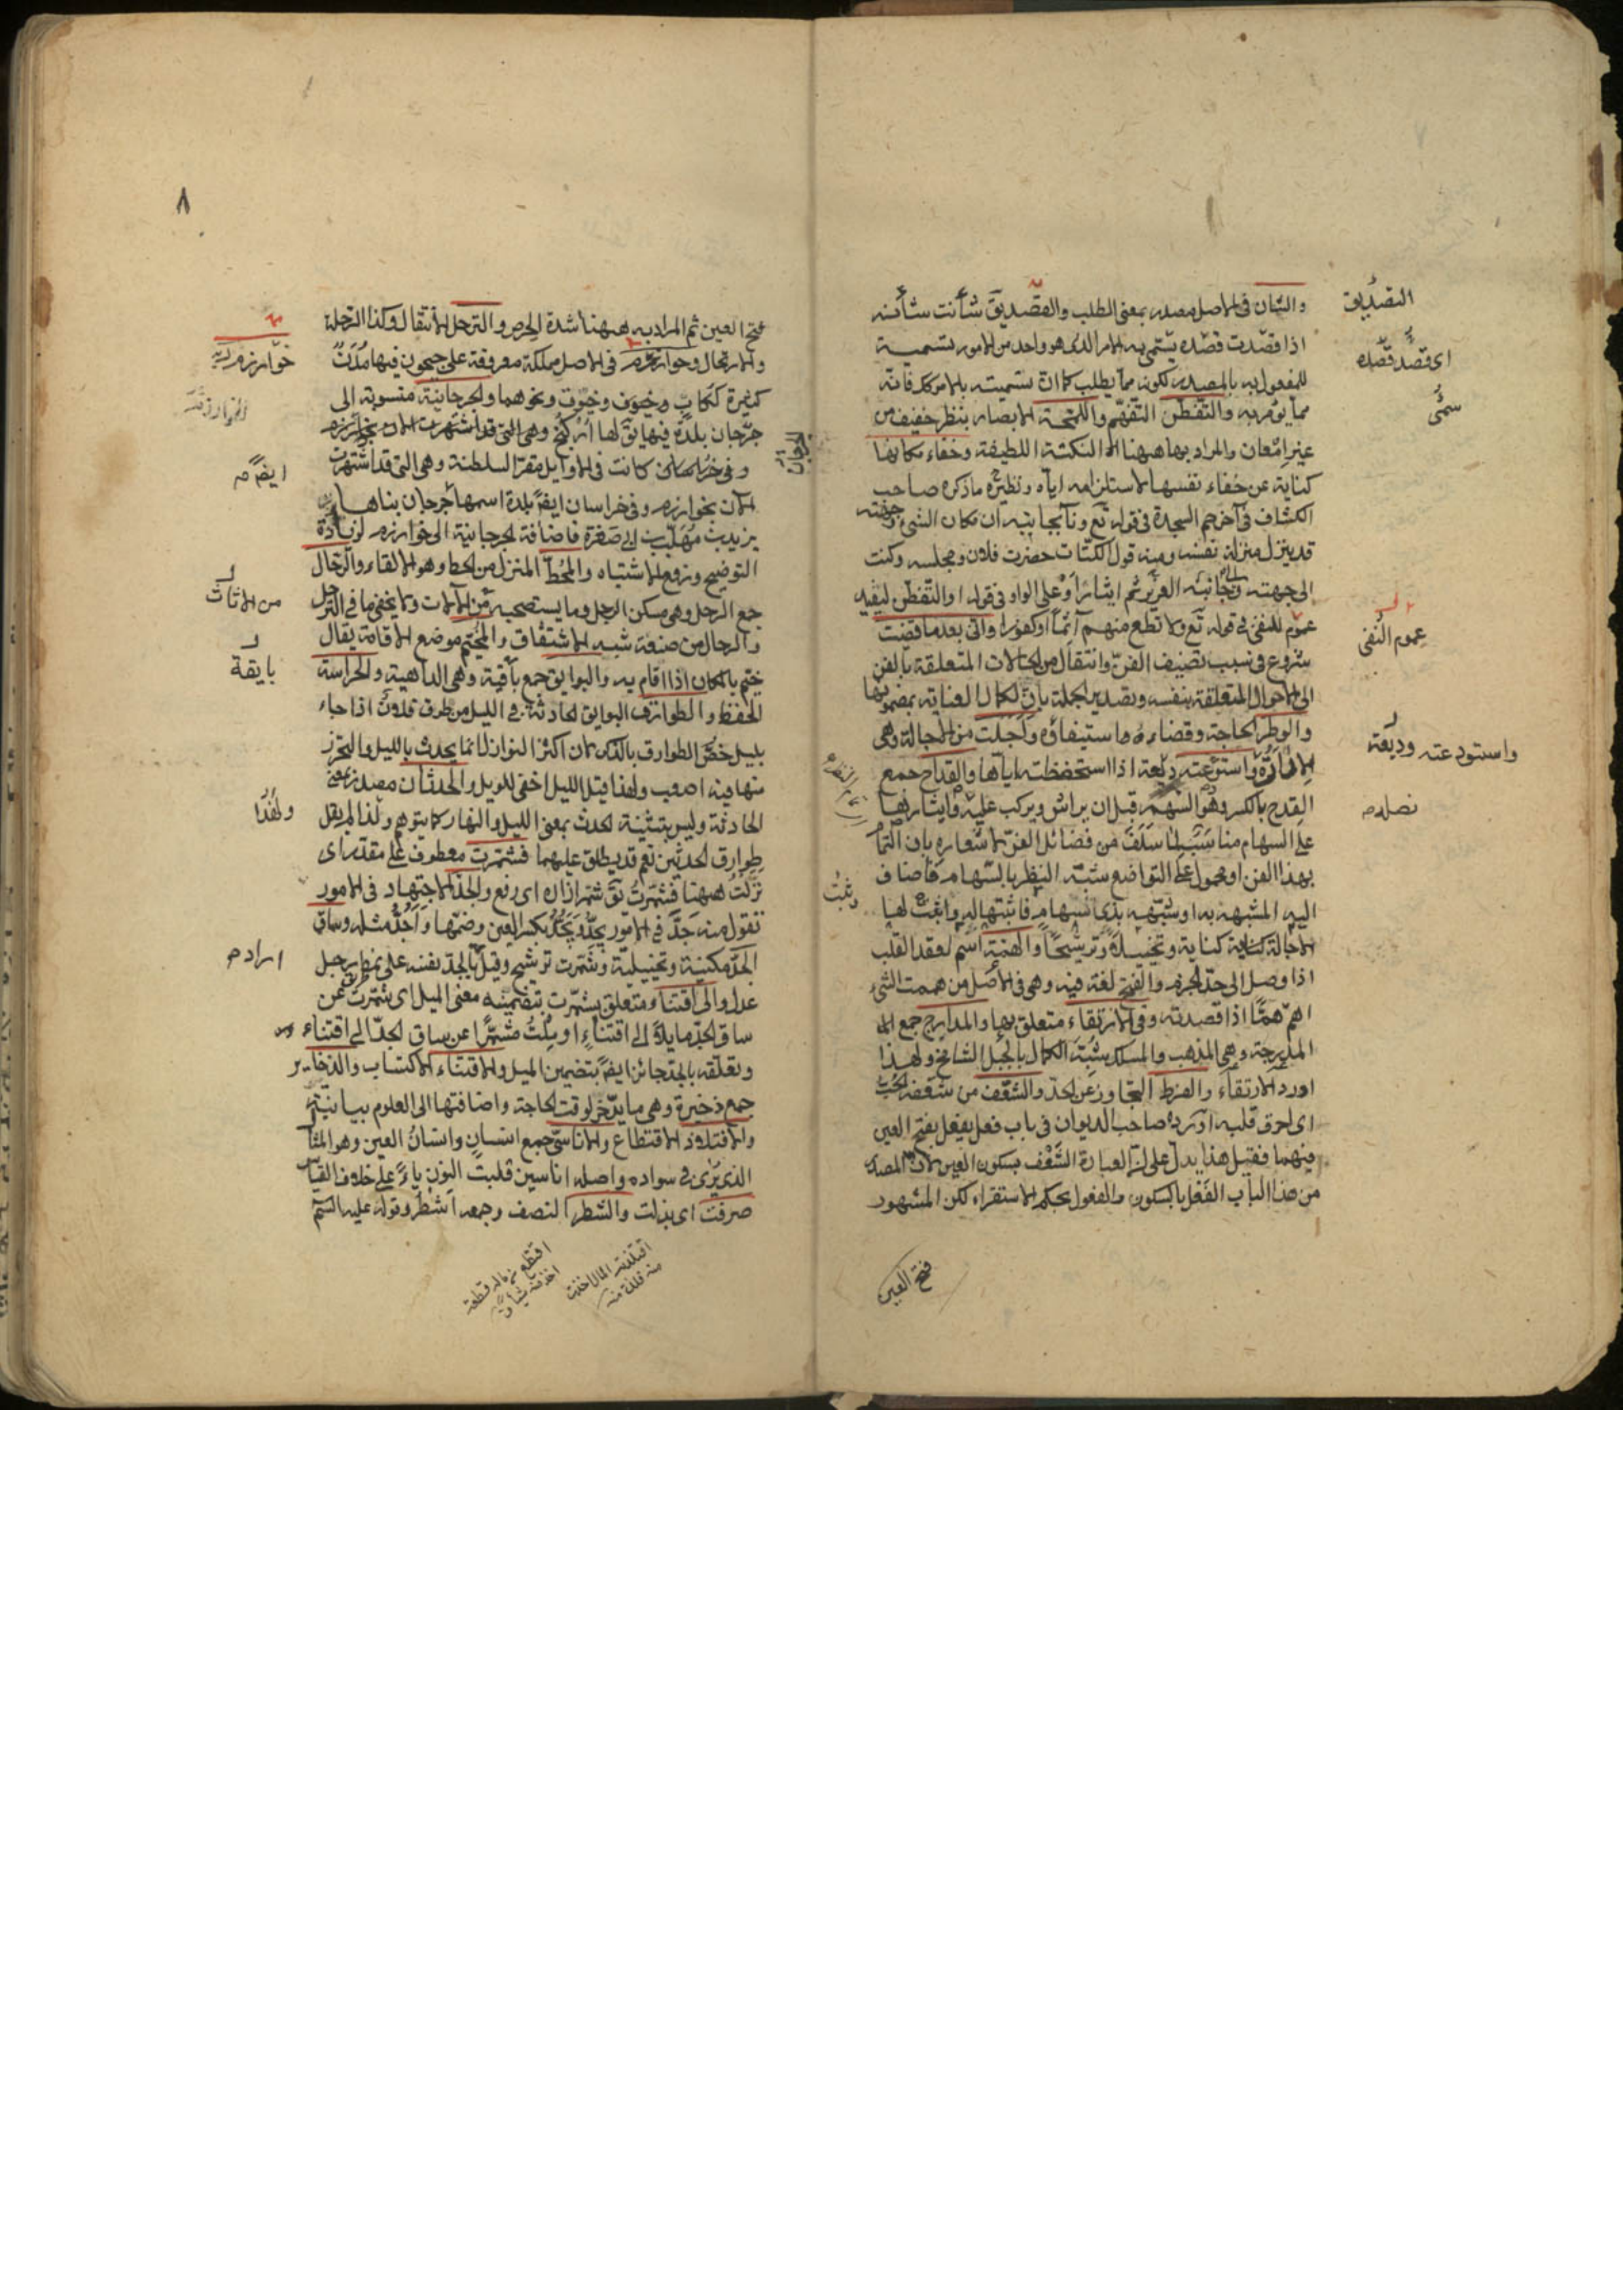 والشان في الاصل مصدر بمعنى الطلب والقصد يق شأنت شأنه
اذا قصدت قصده يسمى به الامر الذي هو واحد من الامور تسمية
للمفعول به بالمصدر لكونه مما يطلب كما ان تسميته بالامر كذلك فانه
مما يؤمر به والتفطن التفهم واللمحة الابصار بنظر خفيف من
غير امعان والمراد بها ههنا النكتة اللطيفة وخفاء مكانها
كناية عن خفاء نفسها لاستلزامه اياه ونظيره ما ذكره صاحب
الكشاف في آخر حم السجدة في قوله تع ونآ بجانبه ان مكان الشئ وجهته
قد ينزل منزلة نفسه ومنه قول الكتاب حضرت فلان ومجلسه وكتبت
الى جهته والى جانبه العزيز ثم ايثار او على الواو في قوله او التفطن ليفيد
عموم للنفي في قوله تع ولا تطع منهم آثما او كفورا واني بعد ما قضيت
شروع في سبب تصنيف الفن وانتقال من الحالات المتعلقة بالفن
الى الاحوال المتعلقة بنفسه وتصدير الجملة بان لكمال العناية بمضمونها
والوطر الحاجة وقضاءه استيفاؤه واجلت من الاجالة وهي
الادارة واستودعته وديعة اذا استحفظته اياها والقداح جمع
القدح بالكسر وهو السهم قبل ان يراش ويركب عليه وايثارها
على السهام مناسب لما سلف من فضائل الفن لاشعاره بان
بهذا الفن او محمول على التواضع شبه النظر بالسهام فاضاف
اليه المشبه به او شبهه بذي سهام فاثبتها له واثبت لها
الاجالة كناية وتخييلا وترشيحا والهمة اسم لعقد القلب
اذا وصل الى حد الجزم والفتح لغة فيه وهي في الاصل من هممت الشئ
اهم همّا اذا قصدته وفي الارتقاء متعلق بها والمدارج جمع
المدرجة وهي المذهب والمسلك شبه الكمال بالجبل الشامخ ولهذا
اورد الارتقاء والفرط التجاوز عن الحد والشغف من شغفه الحب
اى احرق قلبه اورده صاحب الديوان في باب فعل يفعل بفتح العين
فيهما فقيل هذا يدل على ان العبارة الشغف بسكون العين لان المصدر
من هذا الباب الفعل بالسكون والفعول بحكم الاستقراء لكن المشهور
فتح العين
التصديق
اى قصد قصده
سمى
عموم النفى
واستودعته وديعة
نصله
وثبت
٨
فتح العين ثم المراد به ههنا شدة الحرص والترحل الانتقال وكذا الرحلة
والارتحال وخوارزم في الاصل مملكة معروفة على جيحون فيها مدن
كثيرة ككاث وخيوق ونحوهما والجرجانية منسوبة الى
جرجان بلدة فيها يق لها اركنج وهي التي قد اشتهرت الان بخوارزم
وفي خراسان كانت في الاوايل مقر السلطنة وهي التي قد اشتهرت
الان بخوارزم وفي خراسان ايضا بلدة اسمها جرجان بناها
يزيد بن مهلب بن ابي صفرة فاضافة الجرجانية الى خوارزم لزيادة
التوضيح ورفع الاشتباه والمحط المنزل من الحط وهو الالقاء والرحال
جمع الرحل وهي مسكن الرجل وما يستصحبه من الآلات ولا يخفى ما في الترحل
والرحال من صنعة شبه الاشتقاق والمخيم موضع الاقامة يقال
خيم بالمكان اذا اقام به والبوايق جمع باقية وهي الداهية والحراسة
الحفظ والطوارق البوايق الحادثة في الليل من طرق فلان اذا جاء
بليل خص الطوارق بالذكر لان اكثر النوازل انما يحدث بالليل والتحرز
منها فيه اصعب ولهذا قيل الليل اخفى للويل والحدثان مصدر بمعنى
الحادثة وليس بتثنية لحدث بمعنى الليل والنهار كما يتوهم ولذا لم يقل
طوارق الحدثين نعم قد يطلق عليهما فشمرت معطوف على مقدر اى
نزلت ههنا فشمرت يق شمر ازاره اى رفع والجد الاجتهاد في الامور
تقول منه جد في الامور يجد ويجد بكسر العين وضمها واجد مثله وساق
الجد مكنية وتخييلية وشمرت ترشيح وقيل الجد نفسه على نمط رجل
عدل والى اقتناء متعلق بشمرت بتضمينه معنى الميل اى شمرت عن
ساق الجد مايلا الى اقتناء او ملت مشمرا عن ساق الجد الى اقتناء
وتعلقه بالجد جائز ايضا بتضمين الميل والاقتناء الاكتساب والذخاير
جمع ذخيرة وهي ما يدخر لوقت الحاجة واضافتها الى العلوم بيانية
والافتلاذ الاقتطاع والاناسي جمع انسان وانسان العين وهو المثال
الذي يرى في سواده واصله اناسين قلبت النون ياء على خلاف القياس
صرفت اى بذلت والشطر النصف وجمعه اشطر وقوله عليه السم
خوارزم
الجرجان
ايضا
من الاثاث
بايقة
ولهذا
اراد
افتلذته المال اخذت
منه فلذة منه
اقتطع من ماله قطعة